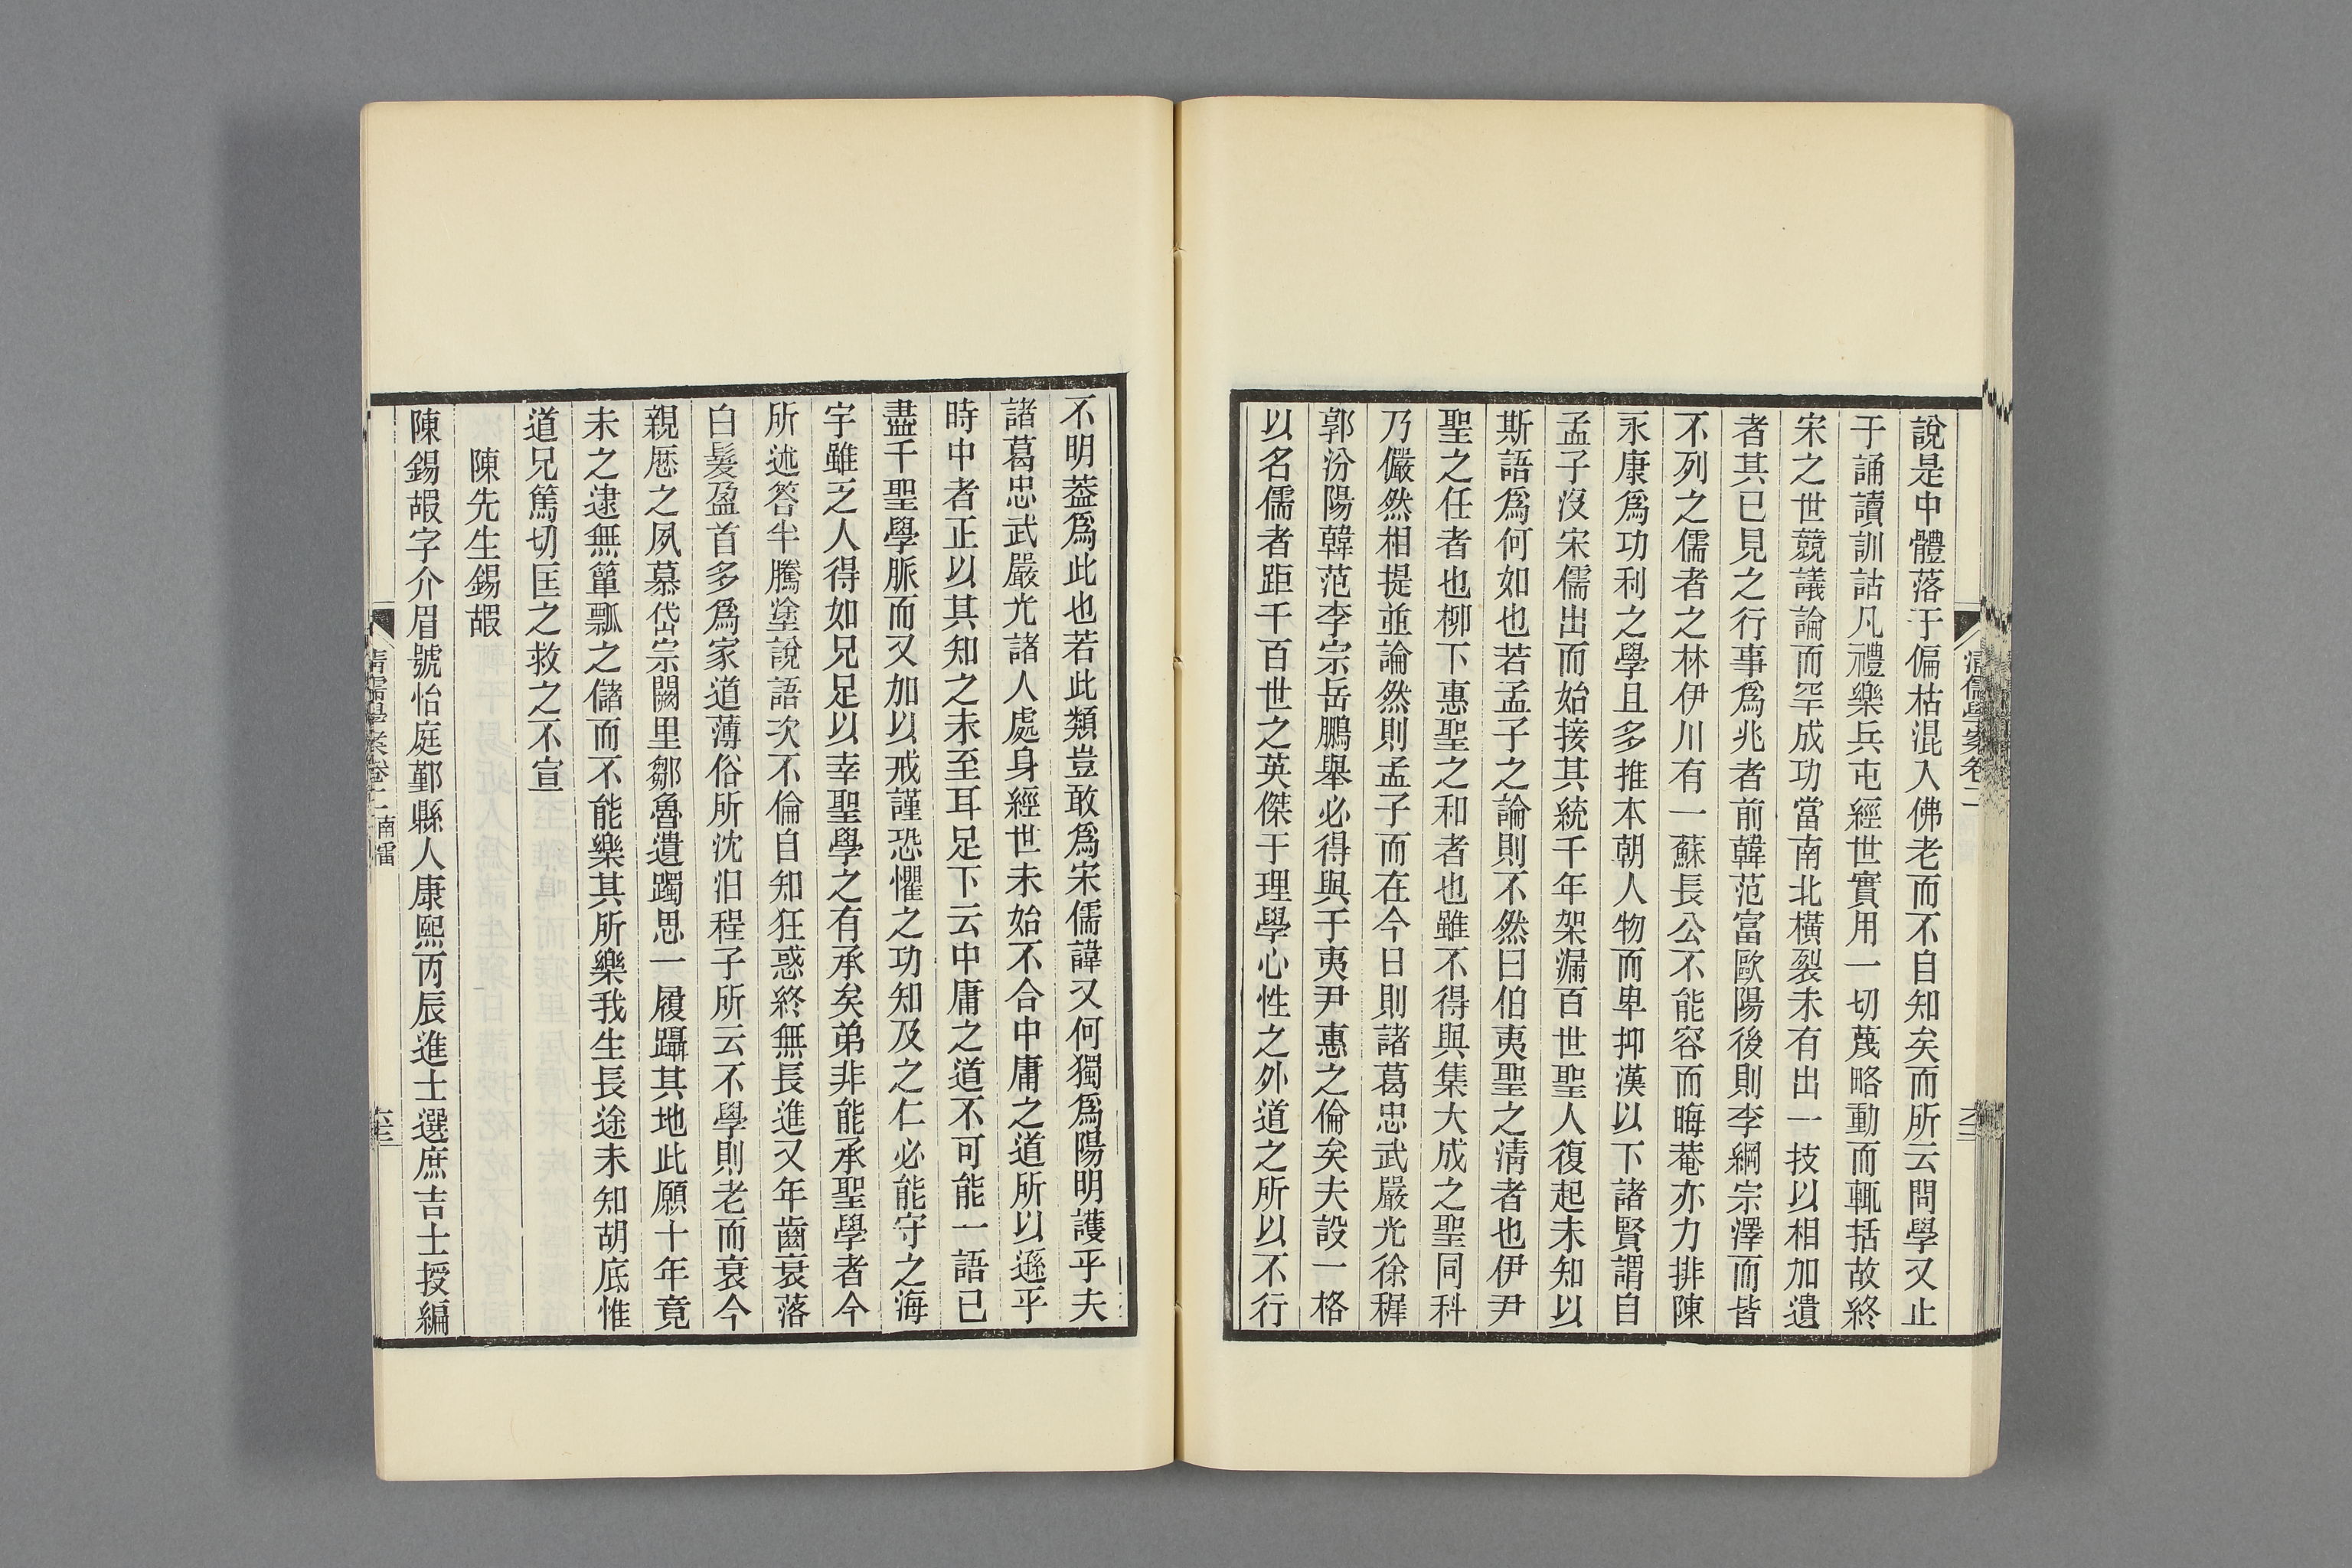 說是中體落于偏枯混入佛老而不自知矣而所云問學又止
于誦讀訓詁凡禮樂兵屯經世實用一切蔑略動而輒括故終
宋之世競議論而罕成功當南北橫裂未有出一技以相加遺
者其已見之行事爲兆者前韓范富歐陽後則李綱宗澤而皆
不列之儒者之林伊川有一蘇長公不能容而晦菴亦力排陳
永康爲功利之學且多推本朝人物而卑抑漢以下諸賢謂自
孟子沒宋儒出而始接其統千年架漏百世聖人復起未知以
斯語爲何如也若孟子之論則不然曰伯夷聖之淸者也伊尹
聖之任者也柳下惠聖之和者也雖不得與集大成之聖同科
乃儼然相提並論然則孟子而在今日則諸葛忠武嚴光徐穉
郭汾陽韓范李宗岳鵬舉必得與于夷尹惠之倫矣夫設一格
以名儒者距千百世之英傑于理學心性之外道之所以不行
清儒學案卷二
不明葢爲此也若此類豈敢爲宋儒諱又何獨爲陽明護乎夫
諸葛忠武嚴光諸人處身經世未始不合中庸之道所以遜乎
時中者正以其知之未至耳足下云中庸之道不可能一語已
盡千聖學脈而又加以戒謹恐懼之功知及之仁必能守之海
宇雖乏人得如兄足以幸聖學之有承矣弟非能承聖學者今
所述答半騰塗說語次不倫自知狂惑終無長進又年齒衰落
白髮盈首多爲家道薄俗所沈汨程子所云不學則老而衰今
親歴之夙慕岱宗闕里鄒魯遺躅思一履躡其地此願十年竟
未之逮無簞瓢之儲而不能樂其所樂我生長途未知胡底惟
道兄篤切匡之救之不宣
陳先生錫嘏
陳錫嘏字介眉號怡庭鄞縣人康熙丙辰進士選庶吉士授編
清儒學案卷二 南雷
六三